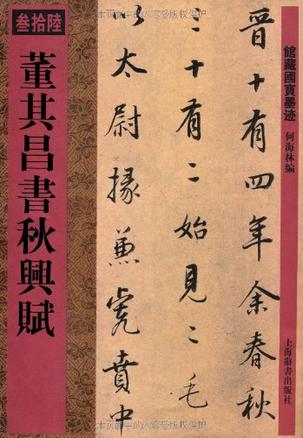 叁拾陸
董其昌書秋興賦
館藏國寶墨迹
何海林編
上海辭書出版社
晉十有四年余春秋
三十有二始見二毛
以太尉掾兼虎賁中